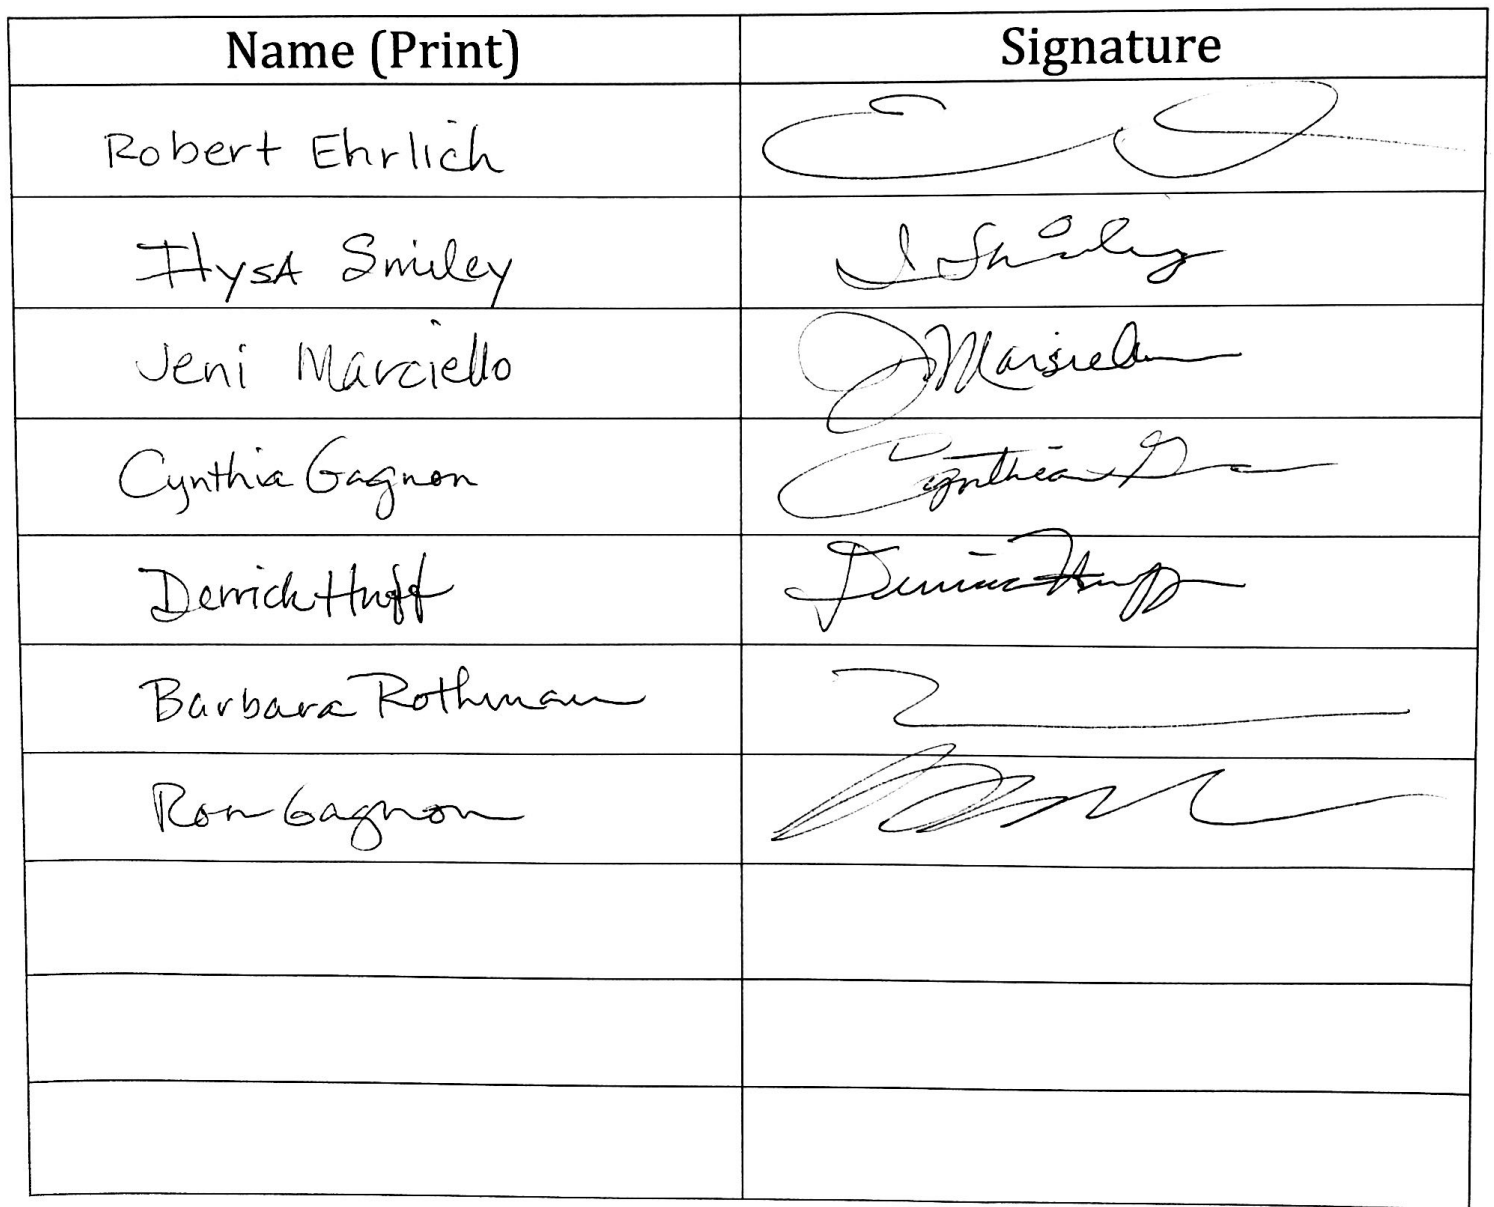 Name (Print) Signature
Robert Ehrlich
Ilysa Smiley J Smiley
Jeni Marciello J Marciello
Cynthia Gagnon Cynthia G
Derrick Huff Derrick Huff
Barbara Rothman
Ron Gagnon